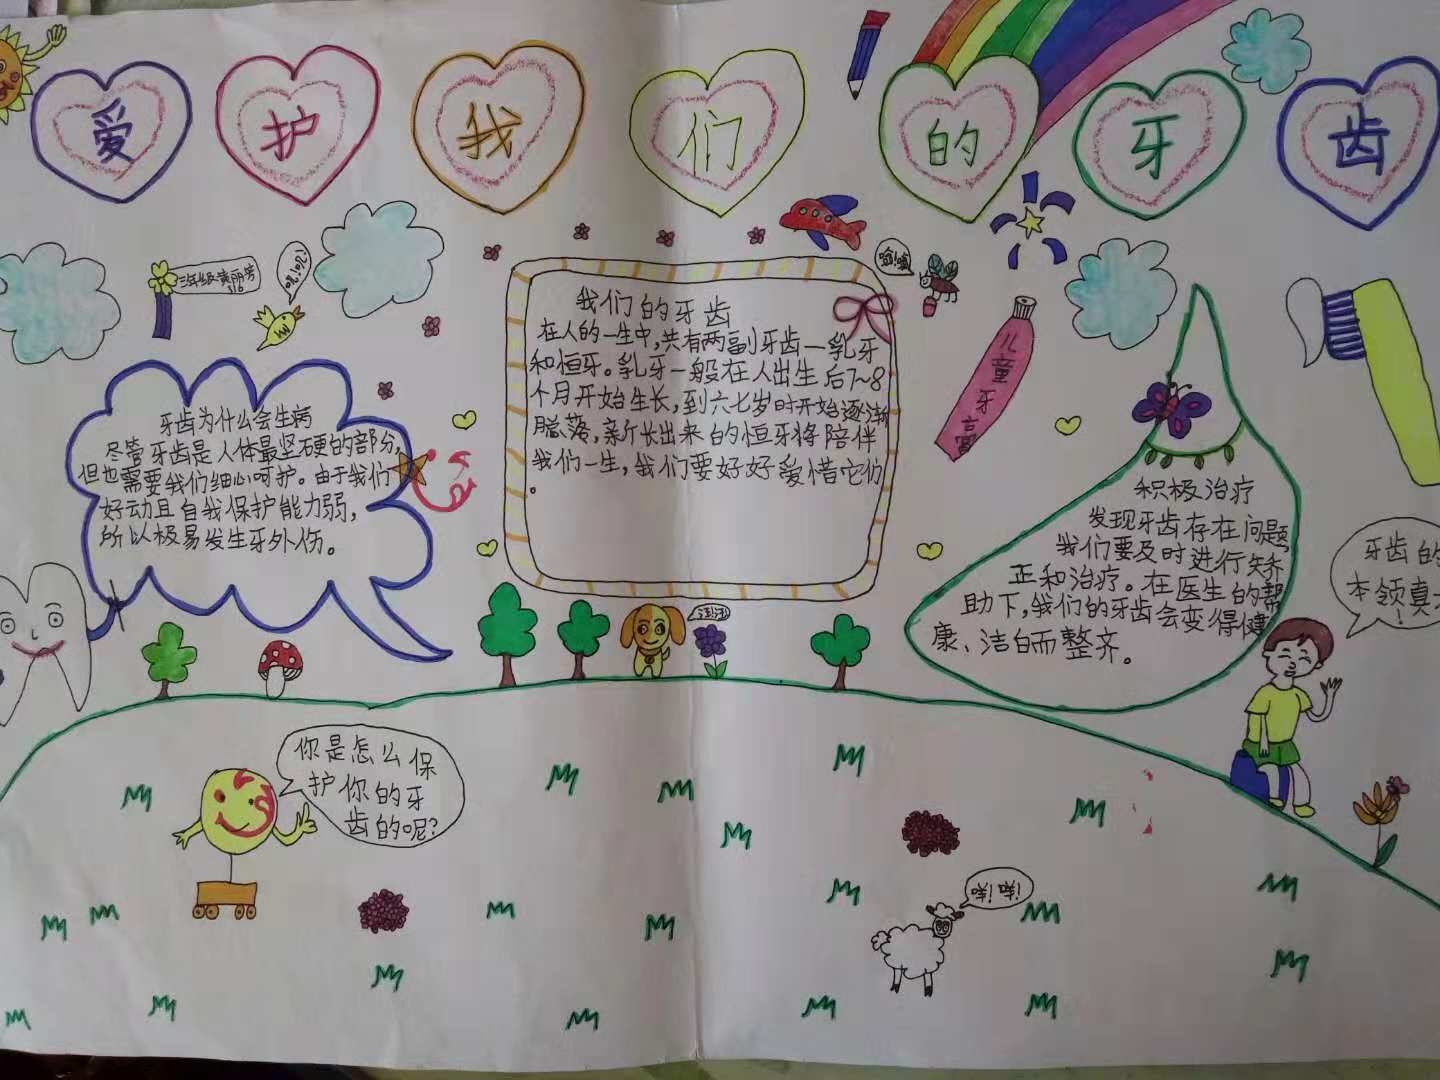 爱护我们的牙齿
三年级
牙齿为什么会生病
尽管牙齿是人体最坚硬的部分,
但也需要我们细心呵护。由于我们
好动且自我保护能力弱,
所以极易发生牙外伤。
我们的牙齿
在人的一生中,共有两副牙齿一乳牙
和恒牙。乳牙一般在人出生后7~8
个月开始生长,到六七岁时开始逐渐
脱落,新长出来的恒牙将陪伴
我们一生,我们要好好爱惜它们
。
嗡!嗡
儿童牙膏
积极治疗
发现牙齿存在问题,
我们要及时进行矫
正和治疗。在医生的帮
助下,我们的牙齿会变得健
康、洁白而整齐。
牙齿的
本领真
!
汪汪
你是怎么保
护你的牙
齿的呢?
咩!咩!